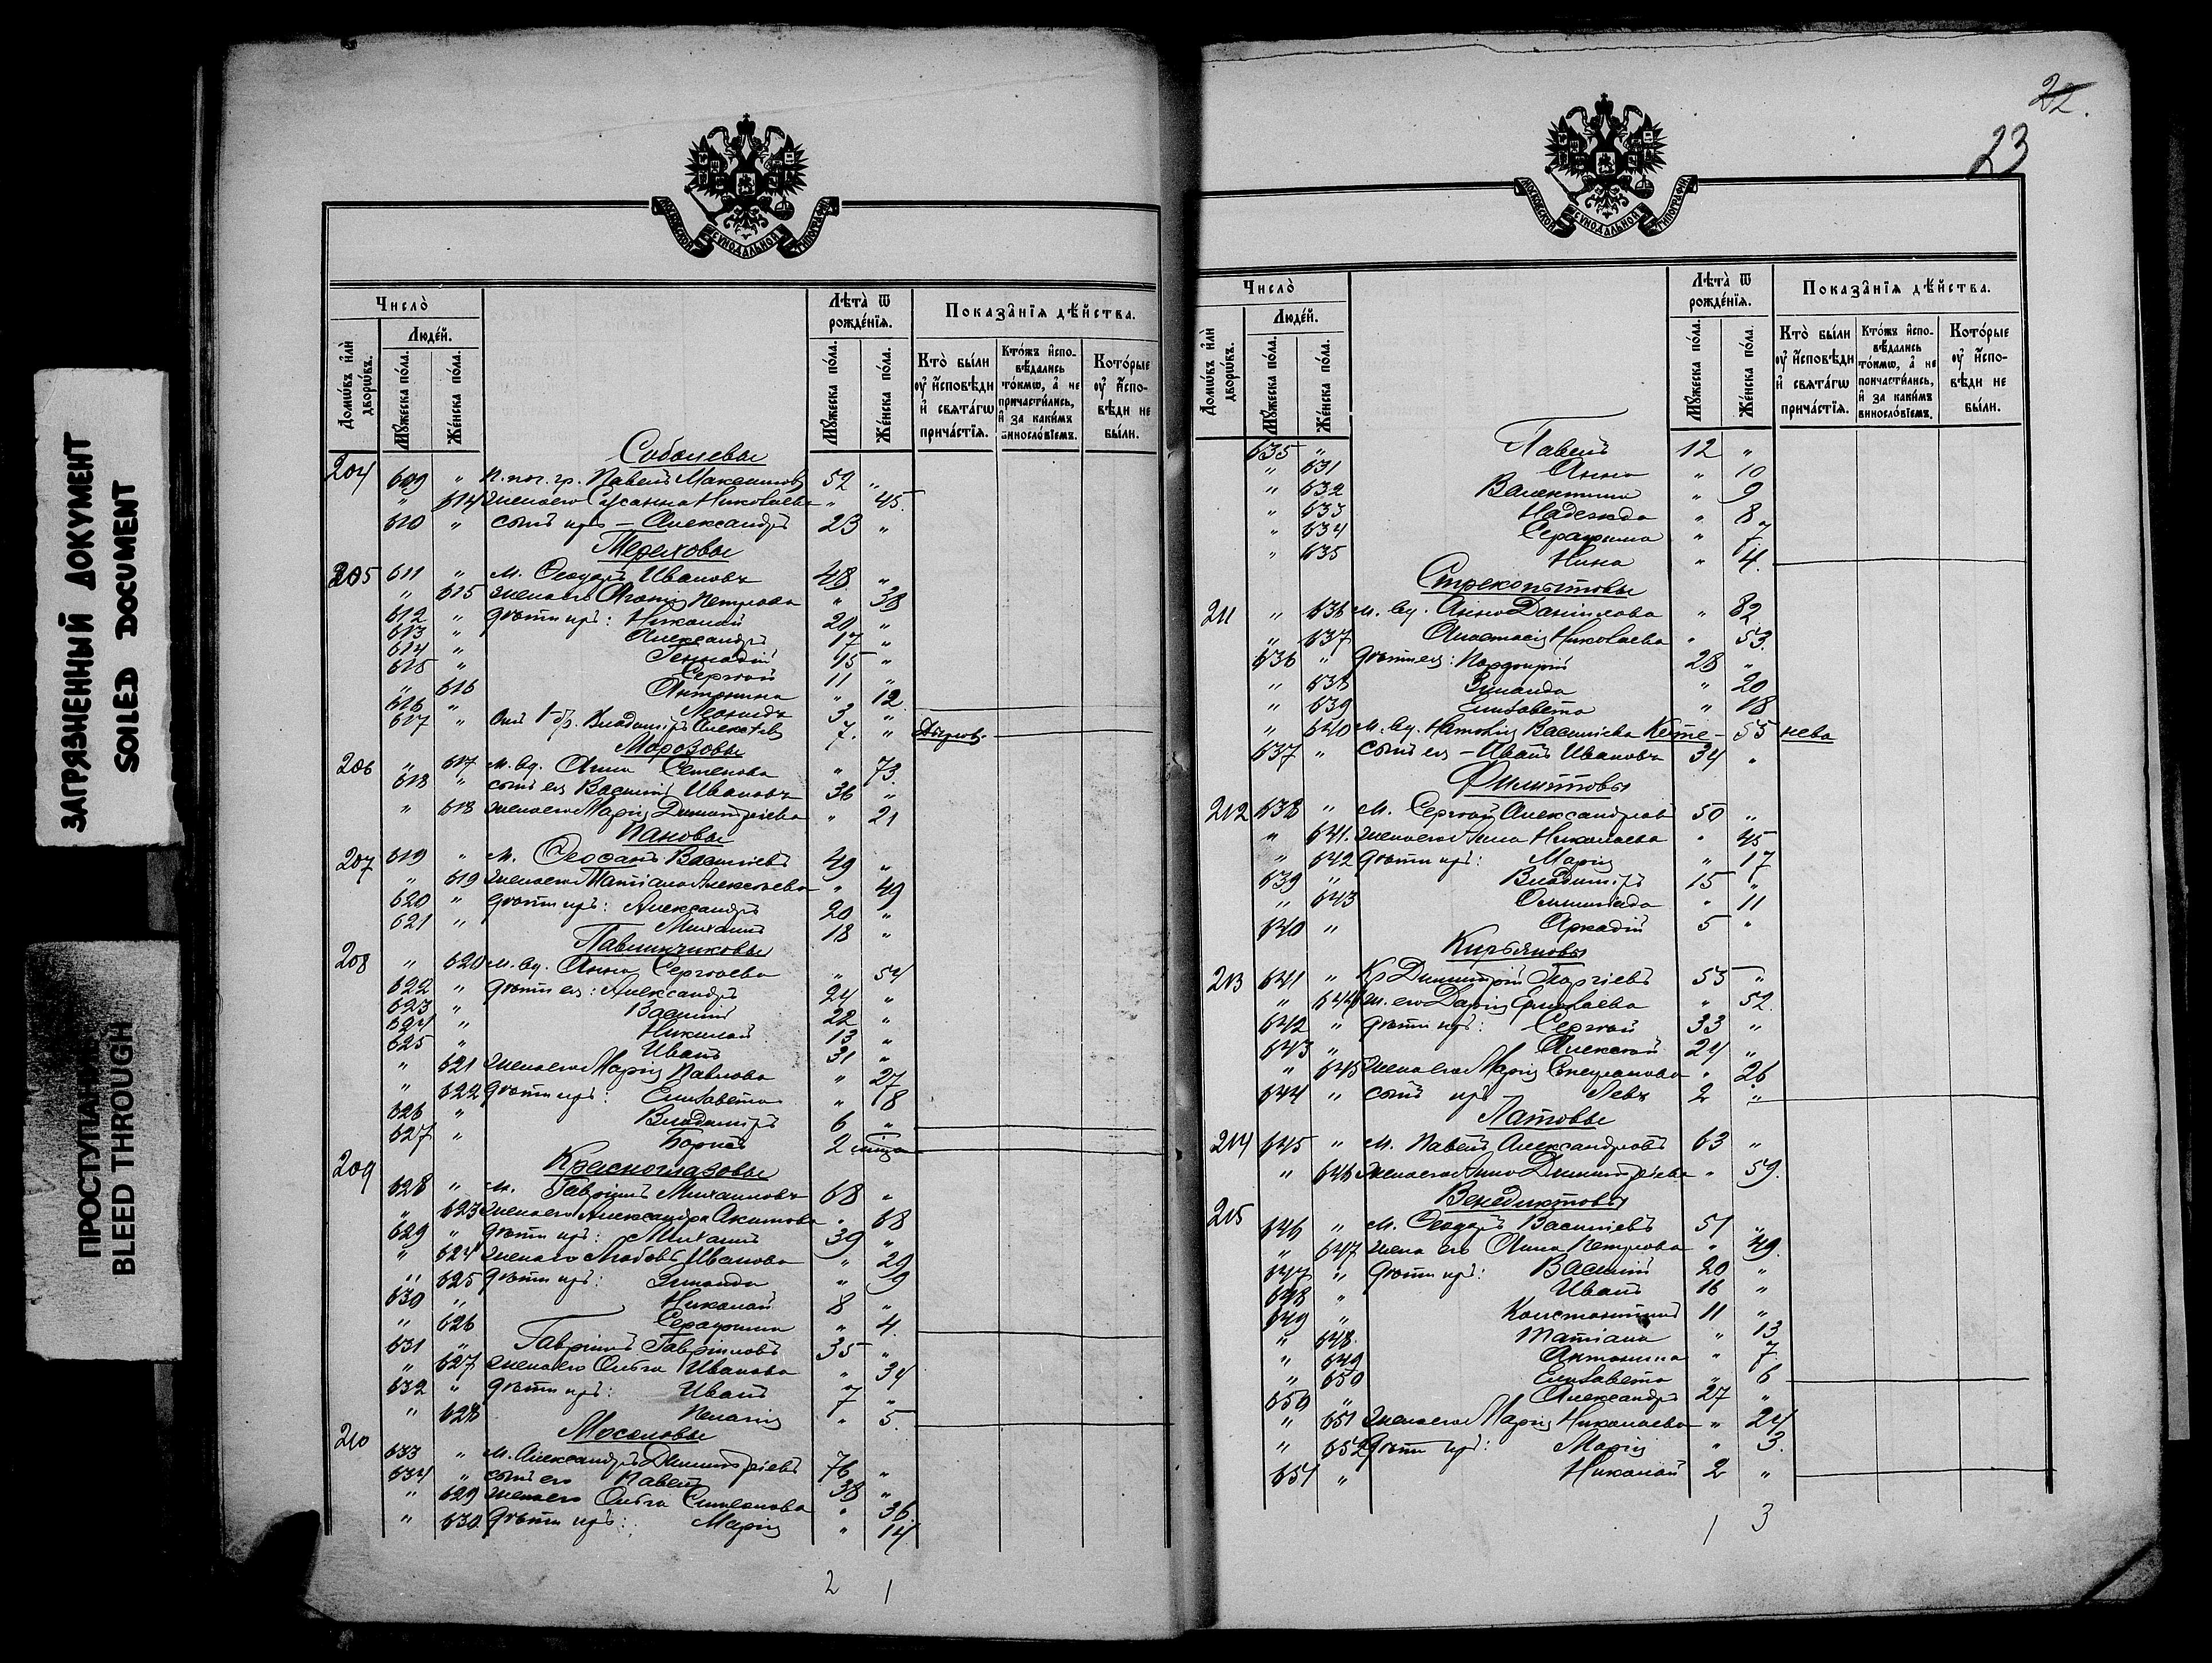 ЗАГРЯЗНЕННЫЙ ДОКУМЕНТ
SOILED DOCUMENT
ПРОСТУПАНИЕ
BLEED THROUGH
МОСКОВСКОЙ СѴНОДАЛЬНОЙ ТИПОГРАФІИ
Число̀
Людéй.
Домѡ́въ и҆лѝ дворѡ́въ.
Мꙋ́жеска по́ла.
Же́нска по́ла.
Лѣта̀ ѿ рождéнїѧ.
Мꙋ́жеска по́ла.
Же́нска по́ла.
Показа̑нїѧ дѣ́йства.
Кто̀ бы́ли ᲂу҆ и҆́сповѣди и҆ свѧта́гѡ прича́стїѧ.
Кто́жъ и҆спо­вѣ́дались то́кмѡ, а҆ не причасти́лись, и҆ за каки́мъ винослóвїемъ.
Кото́рые ᲂу҆ и҆́спо­вѣди не бы́ли.
Соболевы
204 609 " П. поч. гр. Павелъ Максимовъ 52 "
" 614 жена его Сусанна Николаева " 45.
610 " сынъ ихъ – Александръ 23 "
Тереховы
205 611 " М. Ѳеодоръ Ивановъ 48 "
" 615 жена его Петрова " 38
612 " дѣти ихъ: Николай 20 "
613 " Александръ 17 "
614 " Геннадій 15 "
615 " Сергѣй 11 "
" 616 Антонина " 12.
616 " Леонидъ 3 "
617 " Владиміръ 7. "
Морозовы
206 " 617 М. вд. Анна Семенова " 73.
618 " сынъ ея Василій Ивановъ 36 "
" 618 жена его Марія Димитріева " 21
Пановы
207 619 " М. Василіевъ 49 "
" 619 жена его Татіана Алексѣева " 49
620 " дѣти ихъ: Александръ 20 "
621 " Михаилъ 18 "
Павлинчиковы
208 " 620 М. вд. Анна Сергѣева " 54
622 " дѣти ея: Александръ 24 "
623 " Василій 22 "
624 " Николай 13 "
625 " Иванъ 31 "
" 621 жена его Марія Павлова " 27
" 622 дѣти ихъ: Елизавета " 8
626 " Владиміръ 6 "
627 " Борисъ 2
Красноглазовы
209 628 " М. Гавріилъ Михаиловъ 68 "
" 623 жена его Александра Акимова " 68
629 " дѣти ихъ: Михаилъ 39 "
" 624 жена его Любовь Иванова " 29
" 625 дѣти ихъ: Зинаида " 9
630 " Николай 8 "
" 626 Серафима " 4.
631 " Гавріилъ Гавріиловъ 35 "
" 627 жена его Ольга Иванова " 34
632 " дѣти ихъ: Иванъ 7 "
" 628 Пелагія " 5.
Мосоловы
210 633 " М. Александръ Димитріевъ 76 "
634 " сынъ его Павелъ 38 "
" 629 жена его Ольга Симеонова " 36.
" 630 дѣти ихъ: Марія " 14.
2 1
22.
23
МОСКОВСКОЙ СѴНОДАЛЬНОЙ ТИПОГРАФІИ
Число̀
Людéй.
Домѡ́въ и҆лѝ дворѡ́въ.
Мꙋ́жеска по́ла.
Же́нска по́ла.
Лѣта̀ ѿ рождéнїѧ.
Мꙋ́жеска по́ла.
Же́нска по́ла.
Показа̑нїѧ дѣ́йства.
Кто̀ бы́ли ᲂу҆ и҆́сповѣди и҆ свѧта́гѡ прича́стїѧ.
Кто́жъ и҆спо­вѣ́дались то́кмѡ, а҆ не причасти́лись, и҆ за каки́мъ винослóвїемъ.
Кото́рые ᲂу҆ и҆́спо­вѣди не бы́ли.
635 " Павелъ 12 "
" 631 Анна " 10
" 632 Валентина " 9
" 633 Надежда " 8
" 634 Серафима " 7
" 635 Нина " 4.
Стрекопытовы
211 " 636 М. вд. Анна Даниилова " 82
" 637 Анастасія Николаева " 53.
636 " дѣти ея: Порфирій 28 "
" 638 Зинаида " 20
" 639 Елизавета " 18
" 640 М. вд. Наталія Василіева Кете- " 55 нева
637 " сынъ ея – Иванъ Ивановъ 34 "
Филиповы
212 638 " М. Сергѣй Александровъ 50 "
" 641. жена его Анна Николаева " 45
" 642 дѣти ихъ: Марія " 17
639 " Владиміръ 15 "
" 643 Олимпіада " 11
640 " Аркадій 5 "
Кирьяновы
213 641 " Кр Димитрій Георгіевъ 55 "
" 644 ж. его Дарія " 52.
642 " дѣти ихъ: Сергѣй 33 "
643 " Алексѣй 24 "
" 645 жена его Марія Стефанова " 26
644 " сынъ ихъ Левъ 2 "
Латовы
214 645 " М. Павелъ Александровъ 63 "
" 646 жена его Анна Димитріева " 59.
Венедиктовы
215 646 " М. Ѳеодоръ Василіевъ 51 "
" 647 жена его Анна Петрова " 49.
647 " дѣти ихъ: Василій 20 "
648 " Иванъ 16 "
649 " Константинъ 11 "
" 648. Татіана " 13
" 649 Антонина " 7.
" 650 Елизавета " 6
650 " Александръ 27 "
" 651 жена его Марія Николаева " 24
" 652 дѣти ихъ: Марія " 3.
651 " Николай 2 "
1 3